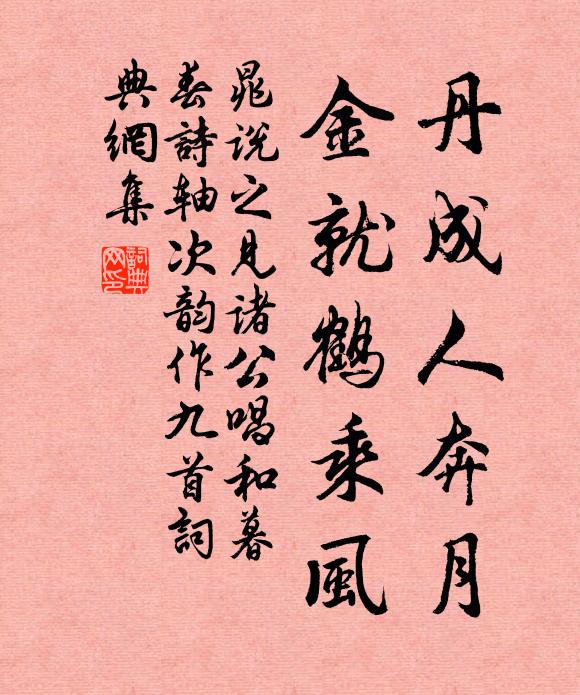 丹成人奔月
金就鶴乘風
晁說之見诸公唱和暮
春詩轴次韵作九首詞
典網集
詞典网印